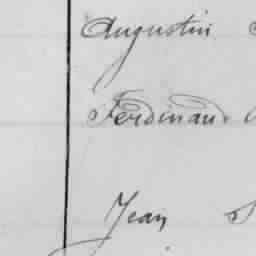 Augustin
Ferdinand
Jean